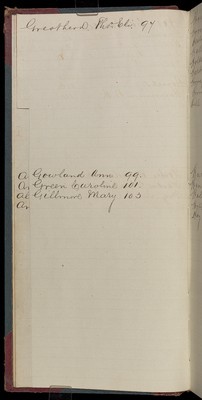 Greathead Thos. Ch. 97
Gowland Ann 99
Green Caroline 101
Gillmore Mary 103